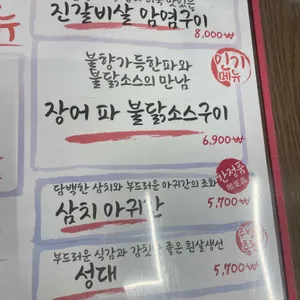 메뉴
진갈비살 암염구이
8,000₩
불향가득한파와
불닭소스의 만남
인기
메뉴
장어 파 불닭소스구이
6,900₩
담백한 삼치와 부드러운 아귀간의 조화
한정품
限定品
삼치 아귀간
5,700₩
부드러운 식감과 감칫맛 좋은 흰살생선
성대
5,700₩